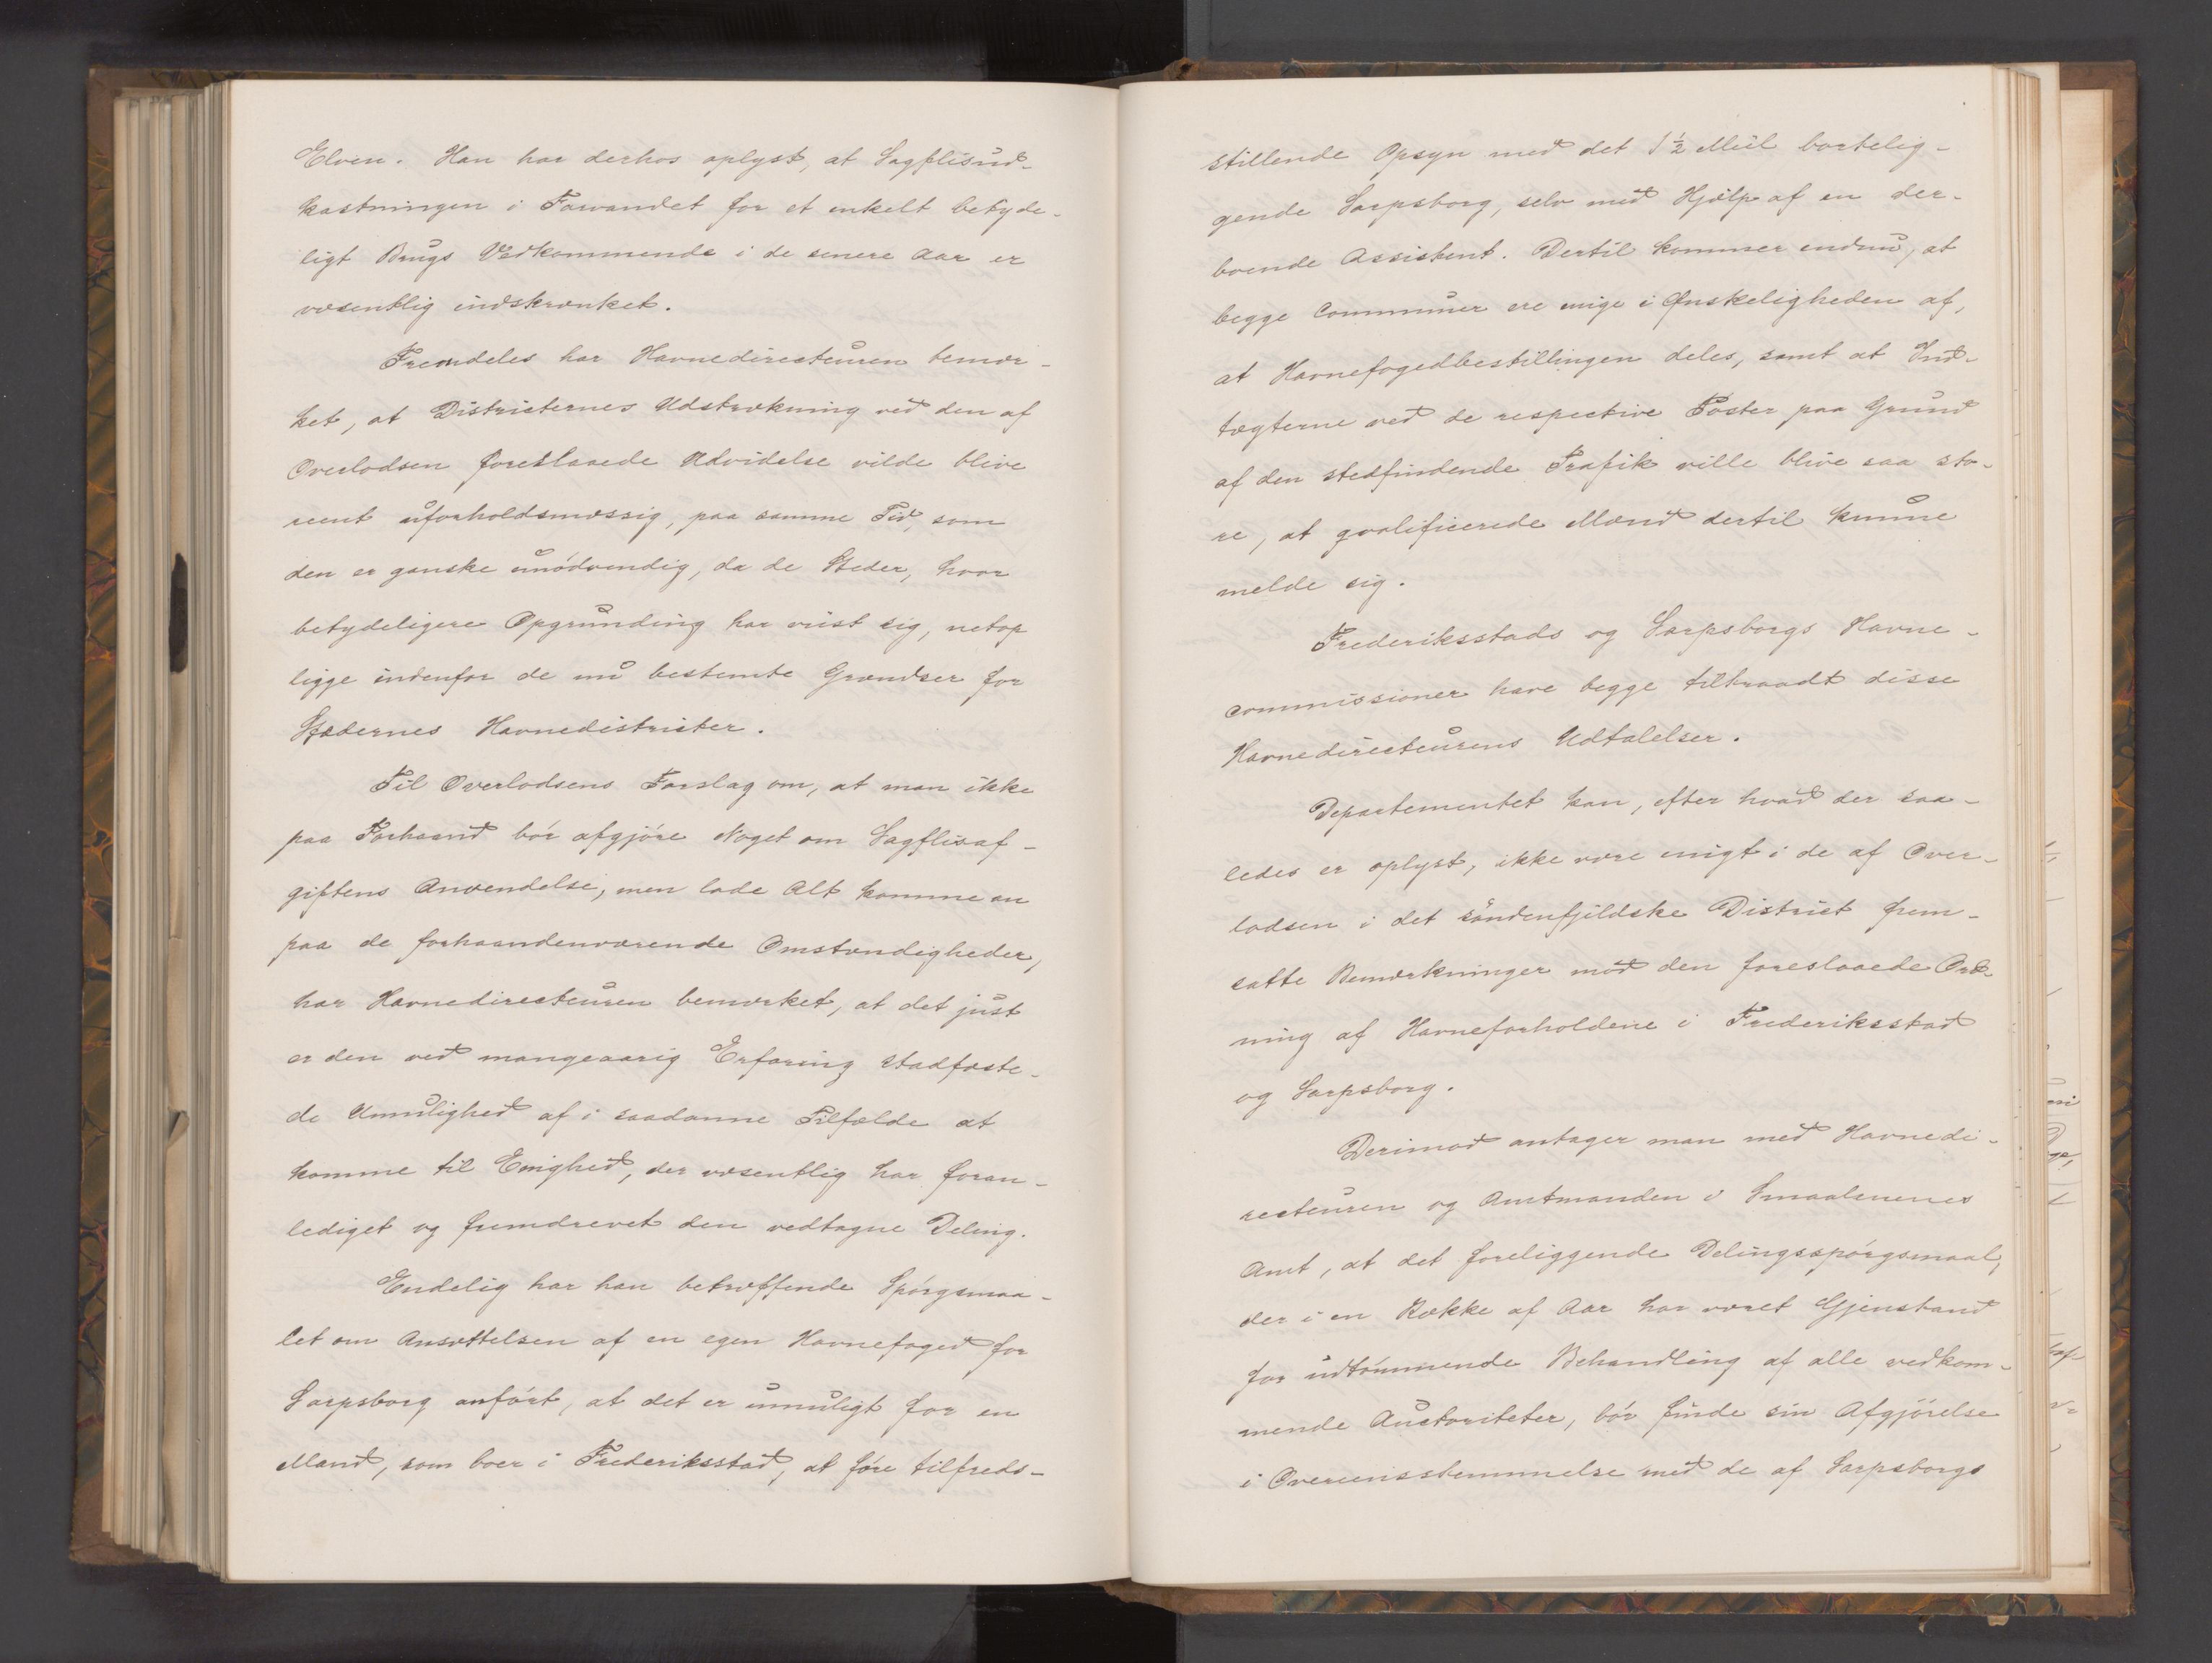 Elven. Han har derhos oplyst, at Sagflisud-
kastningen i Farvandet for et enkelt betyde-
ligt Brugs Vedkommende i de senere Aar er
væsentlig indskrænket.
Fremdeles har Havnedirecteuren bemær-
ket, at Districternes Udstrækning ved den af
Overlodsen foreslaaede Udvidelse vilde blive
reent uforholdsmæssig, paa samme Tid, som
den er ganske unödvendig, da de Steder, hvor
betydeligere Opgrunding har viist sig, netop
ligge indenfor de nu bestemte Grændser for
Stædernes Havnedistricter.
Til Overlodsens Forslag om, at man ikke
paa Forhaand bör afgjöre Noget om Sagflisaf-
giftens Anvendelse, men lade Alt komme an
paa de forhaandenværende Omstændigheder,
har Havnedirecteuren bemærket, at det just
er den ved mangeaarig Erfaring stadfæste-
de Umulighed af i saadanne Tilfælde at
komme til Enighed, der væsentlig har foran-
lediget og fremdrevet den vedtagne Deling.
Endelig har han betræffende Spörgsmaa-
let om Ansættelsen af en egen Havnefoged for
Sarpsborg anfört, at det er umuligt for en
Mand, som boer i Frederiksstad, at före tilfreds-
stillende Opsyn med det 1½ Miil bortelig-
gende Sarpsborg, selv med Hjælp af en der-
boende Assistent. Dertil kommer endnu, at
begge Communer ere enige i Ønskeligheden af,
at Havnefogedbestillingen deles, samt at Ind-
tægterne ved de respective Poster paa Grund
af den stedfindende Trafik ville blive saa sto-
re, at qvalificerede Mænd dertil kunne
melde sig.
Frederiksstads og Sarpsborgs Havne-
commissioner have begge tiltraadt disse
Havnedirecteurens Udtalelser.
Departementet kan, efter hvad der saa-
ledes er oplyst, ikke være enigt i de af Over-
lodsen i det söndenfjeldske District frem-
satte Bemærkninger mod den foreslaaede Ord-
ning af Havneforholdene i Frederiksstad
og Sarpsborg.
Derimod antager man med Havnedi-
recteuren og Amtmanden i Smaalenenes
Amt, at det foreliggende Delingsspörgsmaal,
der i en Række af Aar har været Gjenstand
for udtömmende Behandling af alle vedkom-
mende Auctoriteter, bör finde sin Afgjörelse
i Overeensstemmelse med de af Sarpsborgs